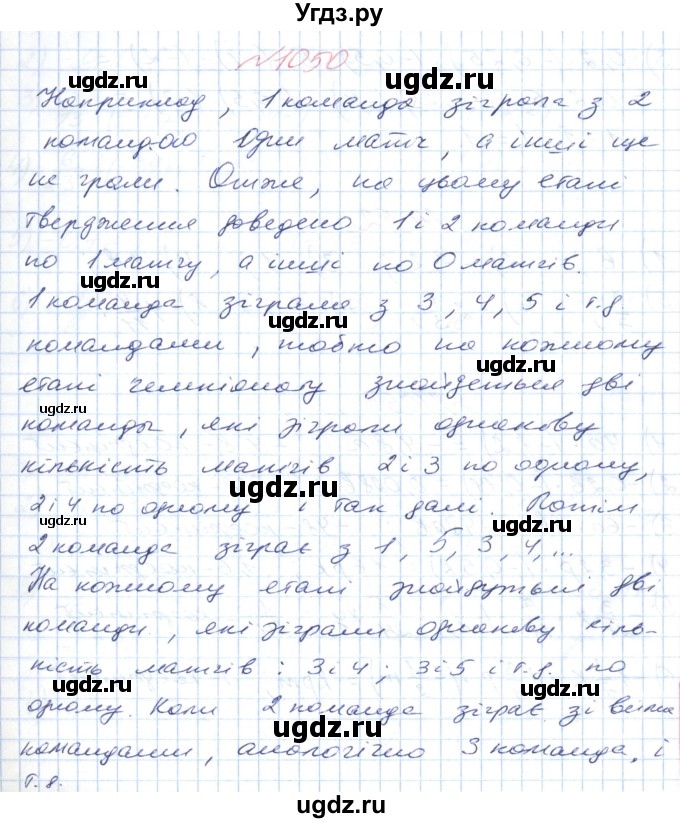 Угдз.ру
№1050
ugdz.ru ugdz.ru
Наприклад, 1 команда зіграла з 2
командою один матч, а інші ще
ugdz.ru
не грали. Отже, на цьому етапі
твердження доведено 1 і 2 команди
по 1 матчу, а інші по 0 матчів.
ugdz.ru
1 команда зіграла з 3, 4, 5 і т.д.
ugdz.ru
командами, тобто на кожному
ugdz.ru
етапі чемпіонату знайдеться дві
ugdz.ru
команды, які зіграли однакову
кількість матчів 2 і 3 по одному,
ugdz.ru
2 і 4 по одному і так далі. Потім
ugdz.ru
2 команда зіграє з 1, 5, 3, 4, ...
ugdz.ru
На кожному етапі знайдуться дві
команди, які зіграли однакову кіль-
ugdz.ru
кість матчів: 3 і 4; 3 і 5 і т.д. по
ugdz.ru ugdz.ru
одному. Коли 2 команда зіграє зі всіма
ugdz.ru
командами, аналогічно 3 команда, і
т.д.
ugdz.ru